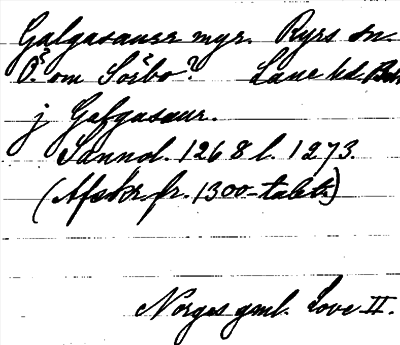 Galgasaurr myr. Ryrs sn.
Ö. om Sörbo? Lane hd. Boh
j Galgasaur.
Sannol. 1268 l. 1273.
(Afskr. fr. 1300-talet.)
Norges gml. Love II.